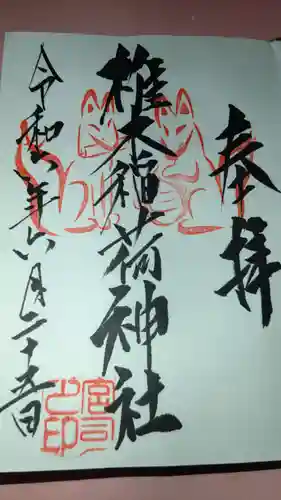 奉拝
椎木稲荷神社
令和六年六月二十五日
宮司
之印